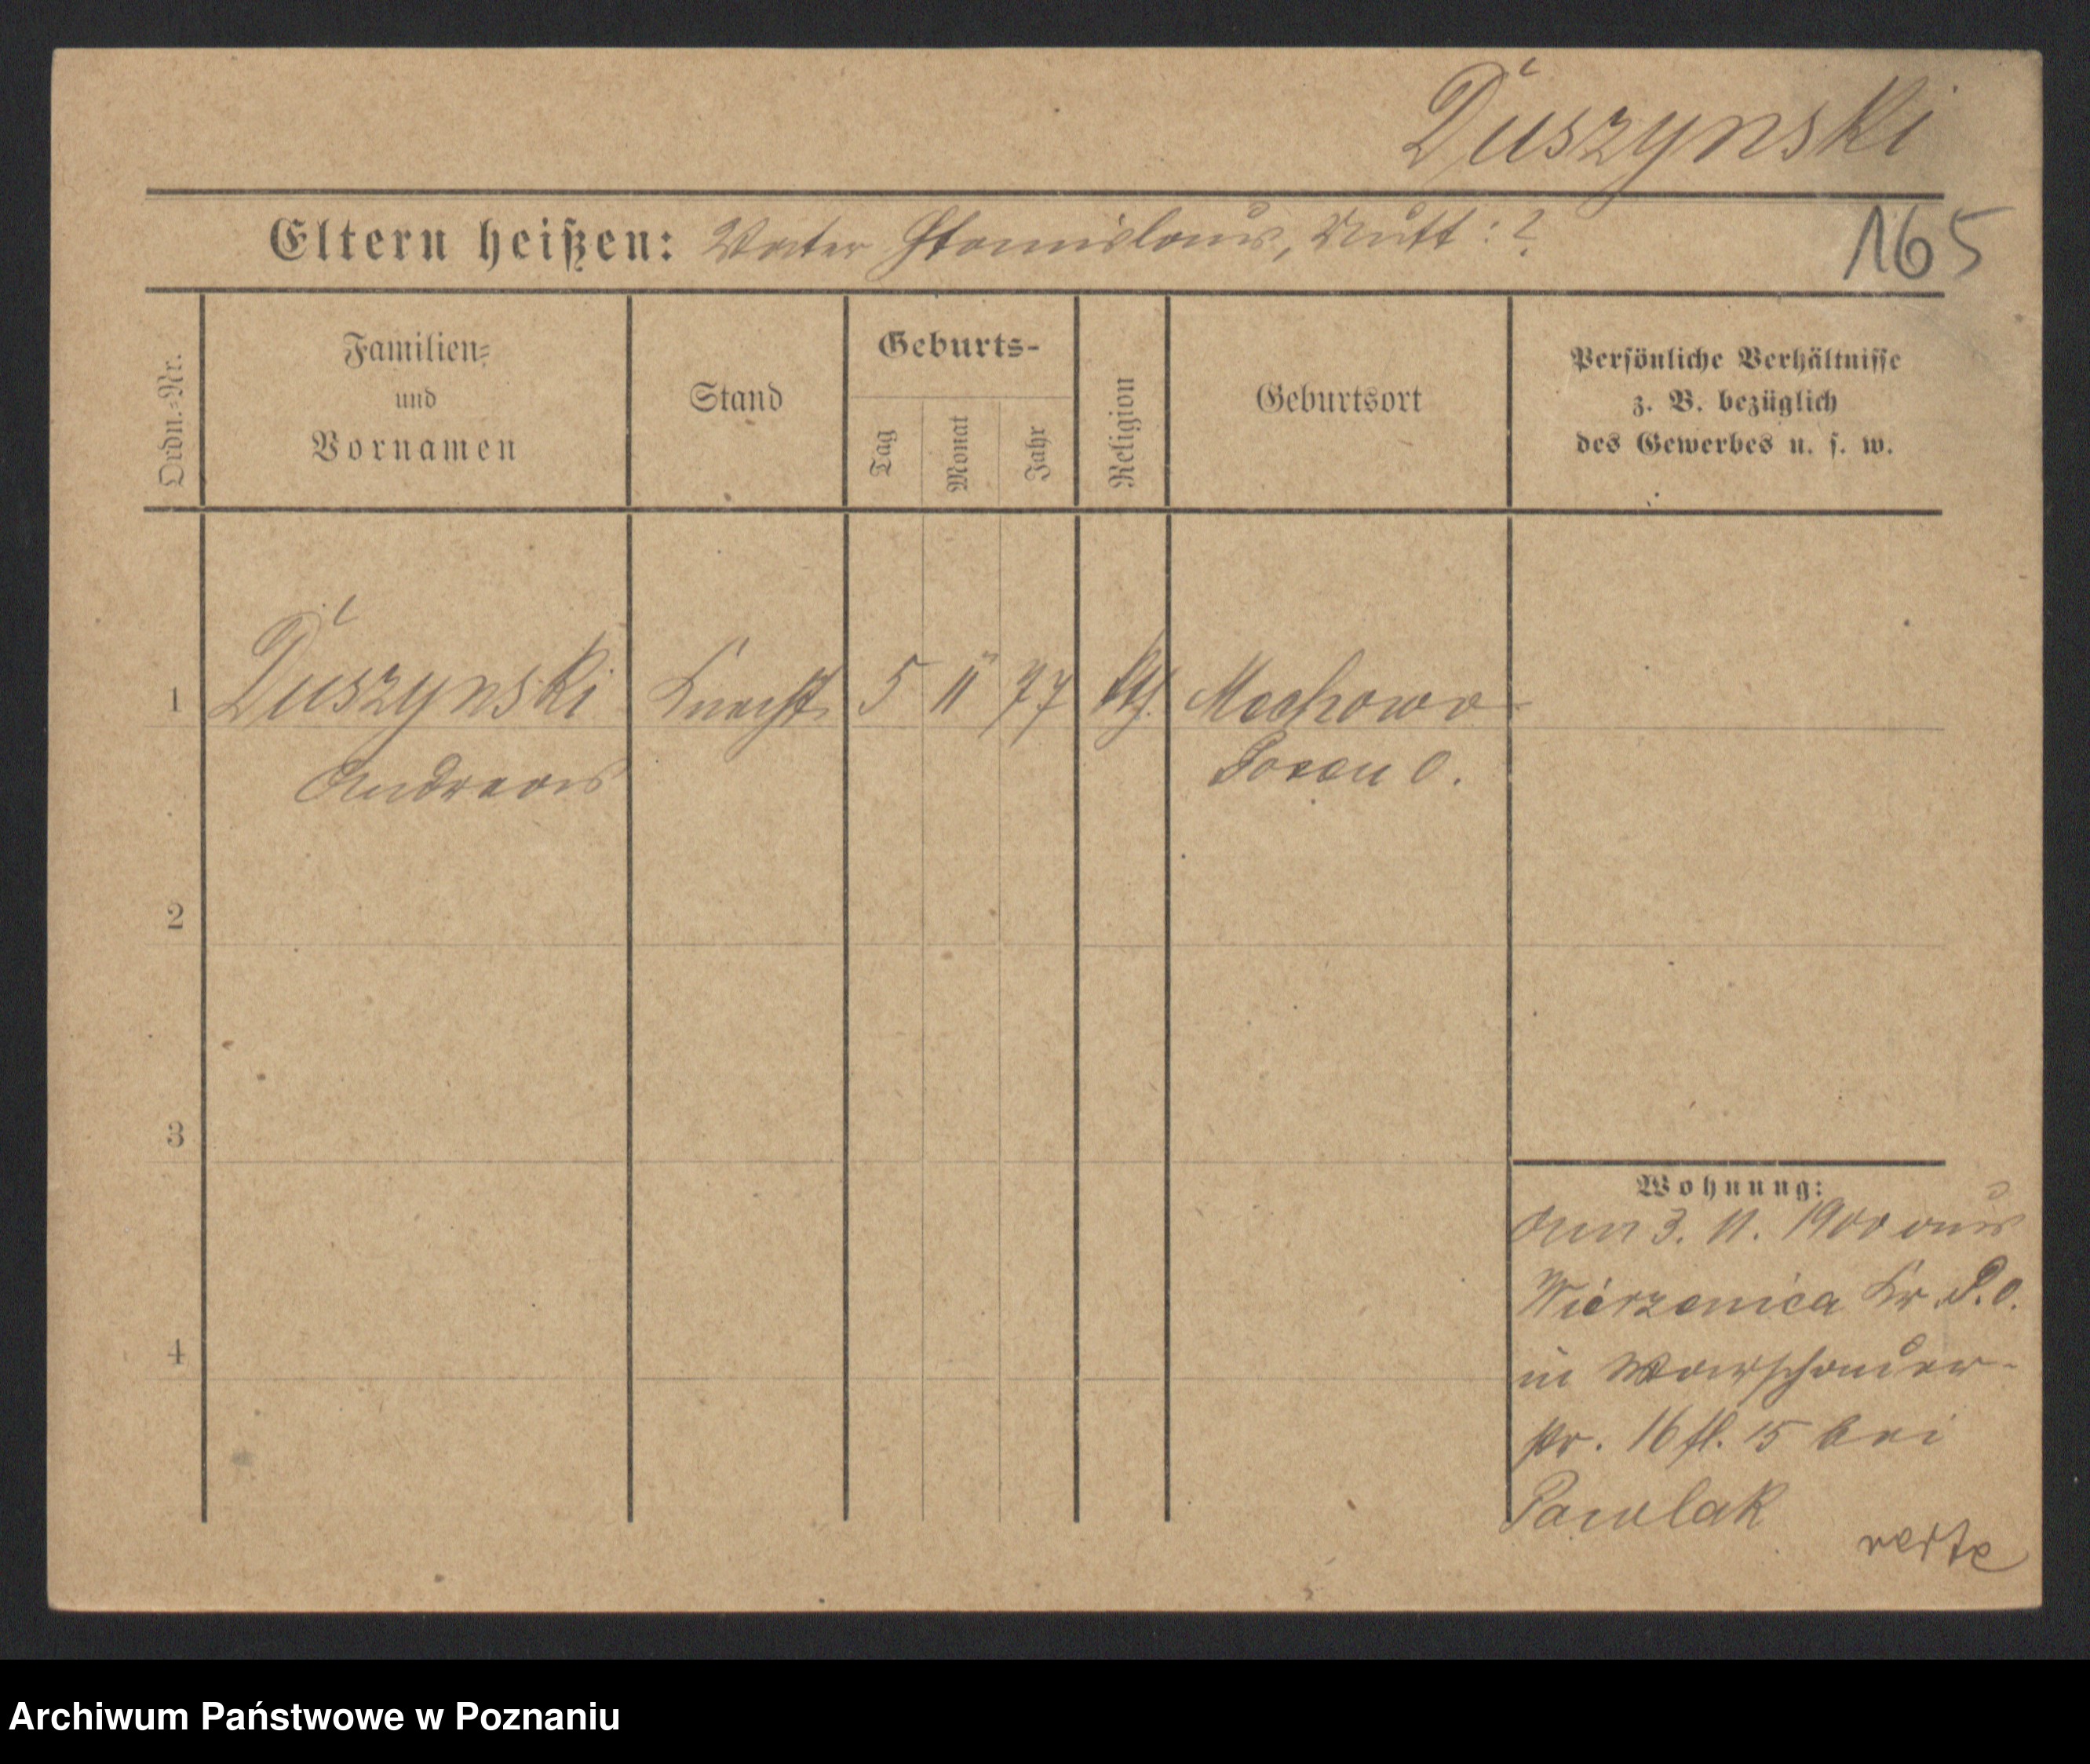 Duszynski
Eltern heißen: Vater Stanislaus, Mutt: ?
165
Ordn.=Nr.
Familien=
und
Vornamen
Stand
Geburts-
Tag
Monat
Jahr
Religion
Geburtsort
Persönliche Verhältnisse
z. B. bezüglich
des Gewerbes u. s. w.
1 Duszynski Knecht 5 11 77 kth. Mechowo
Andreas Posen O.
2
3
4
Wohnung:
Am 3. 11. 1900 aus
Wierzenica Kr. P. O.
in Warschauer-
str. 16 fl. 15 bei
Pawlak
verte
Archiwum Państwowe w Poznaniu